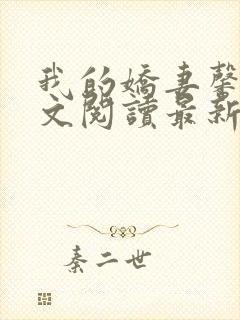 我的嬌妻馨
文閱讀最新
秦二世